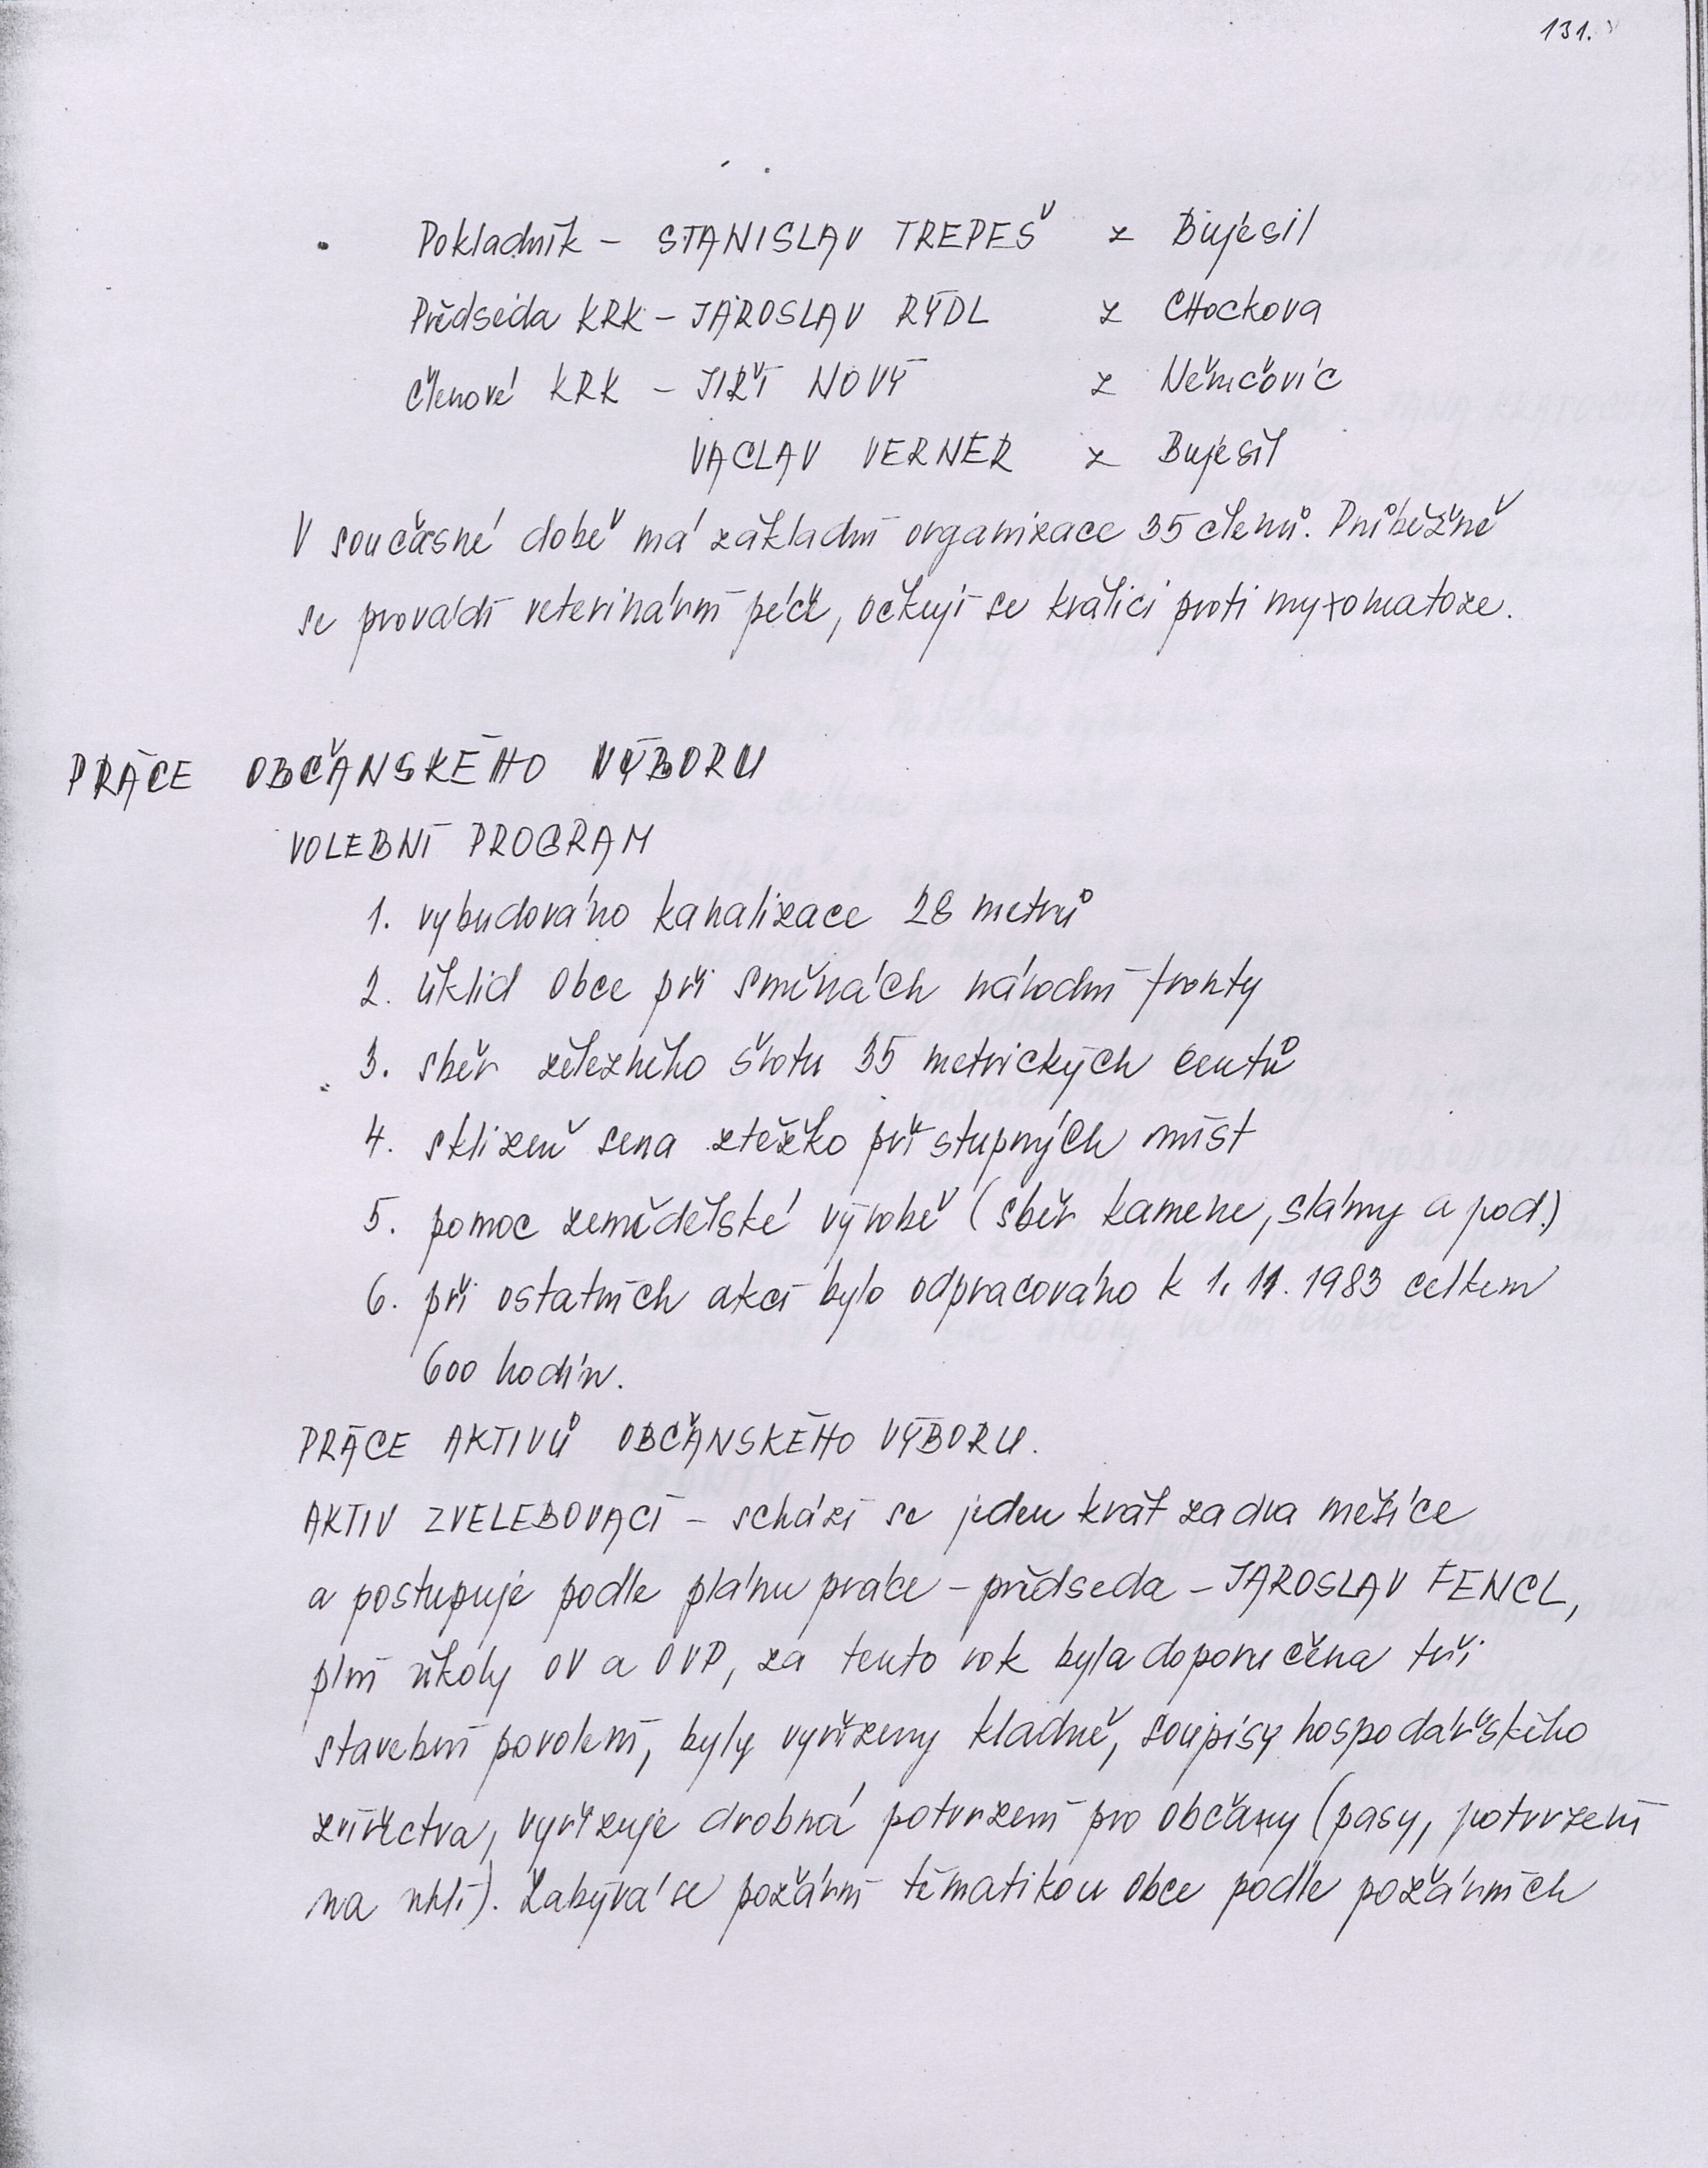 131.
Pokladník – STANISLAV TREPEŠ z Bujesil
Předseda KRK – JAROSLAV RÝDL z CHockova
Členové KRK – JIŘÍ NOVÝ z Němčovic
VÁCLAV VERNER z Bujesil
V současné době má základní organizace 35 členů. Průběžně
se provádí veterinární péče, očkují se králíci proti myxomatoze.
PRÁCE OBČANSKÉHO VÝBORU
VOLEBNÍ PROGRAM
1. vybudováno kanalizace 28 metrů
2. úklid obce při směnách národní fronty
3. sběr železného šrotu 35 metrických centů
4. sklizeň sena ztěžko přístupných míst
5. pomoc zemědělské výrobě (sběr kamene, slámy a pod.)
6. při ostatních akcí bylo odpracováno k 1. 11. 1983 celkem
600 hodin.
PRÁCE AKTIVŮ OBČANSKÉHO VÝBORU.
AKTIV ZVELEBOVACÍ – schází se jeden krát za dva měsíce
a postupuje podle plánu práce – předseda – JAROSLAV FENCL,
plní úkoly OV a OVP, za tento rok byla doporučena tři
stavební povolení, byly vyřízeny kladně, soupisy hospodářského
zvířectva, vyřizuje drobná potvrzení pro občany (pasy, potvrzení
na uhlí). Zabývá se požární tématikou obce podle požárních